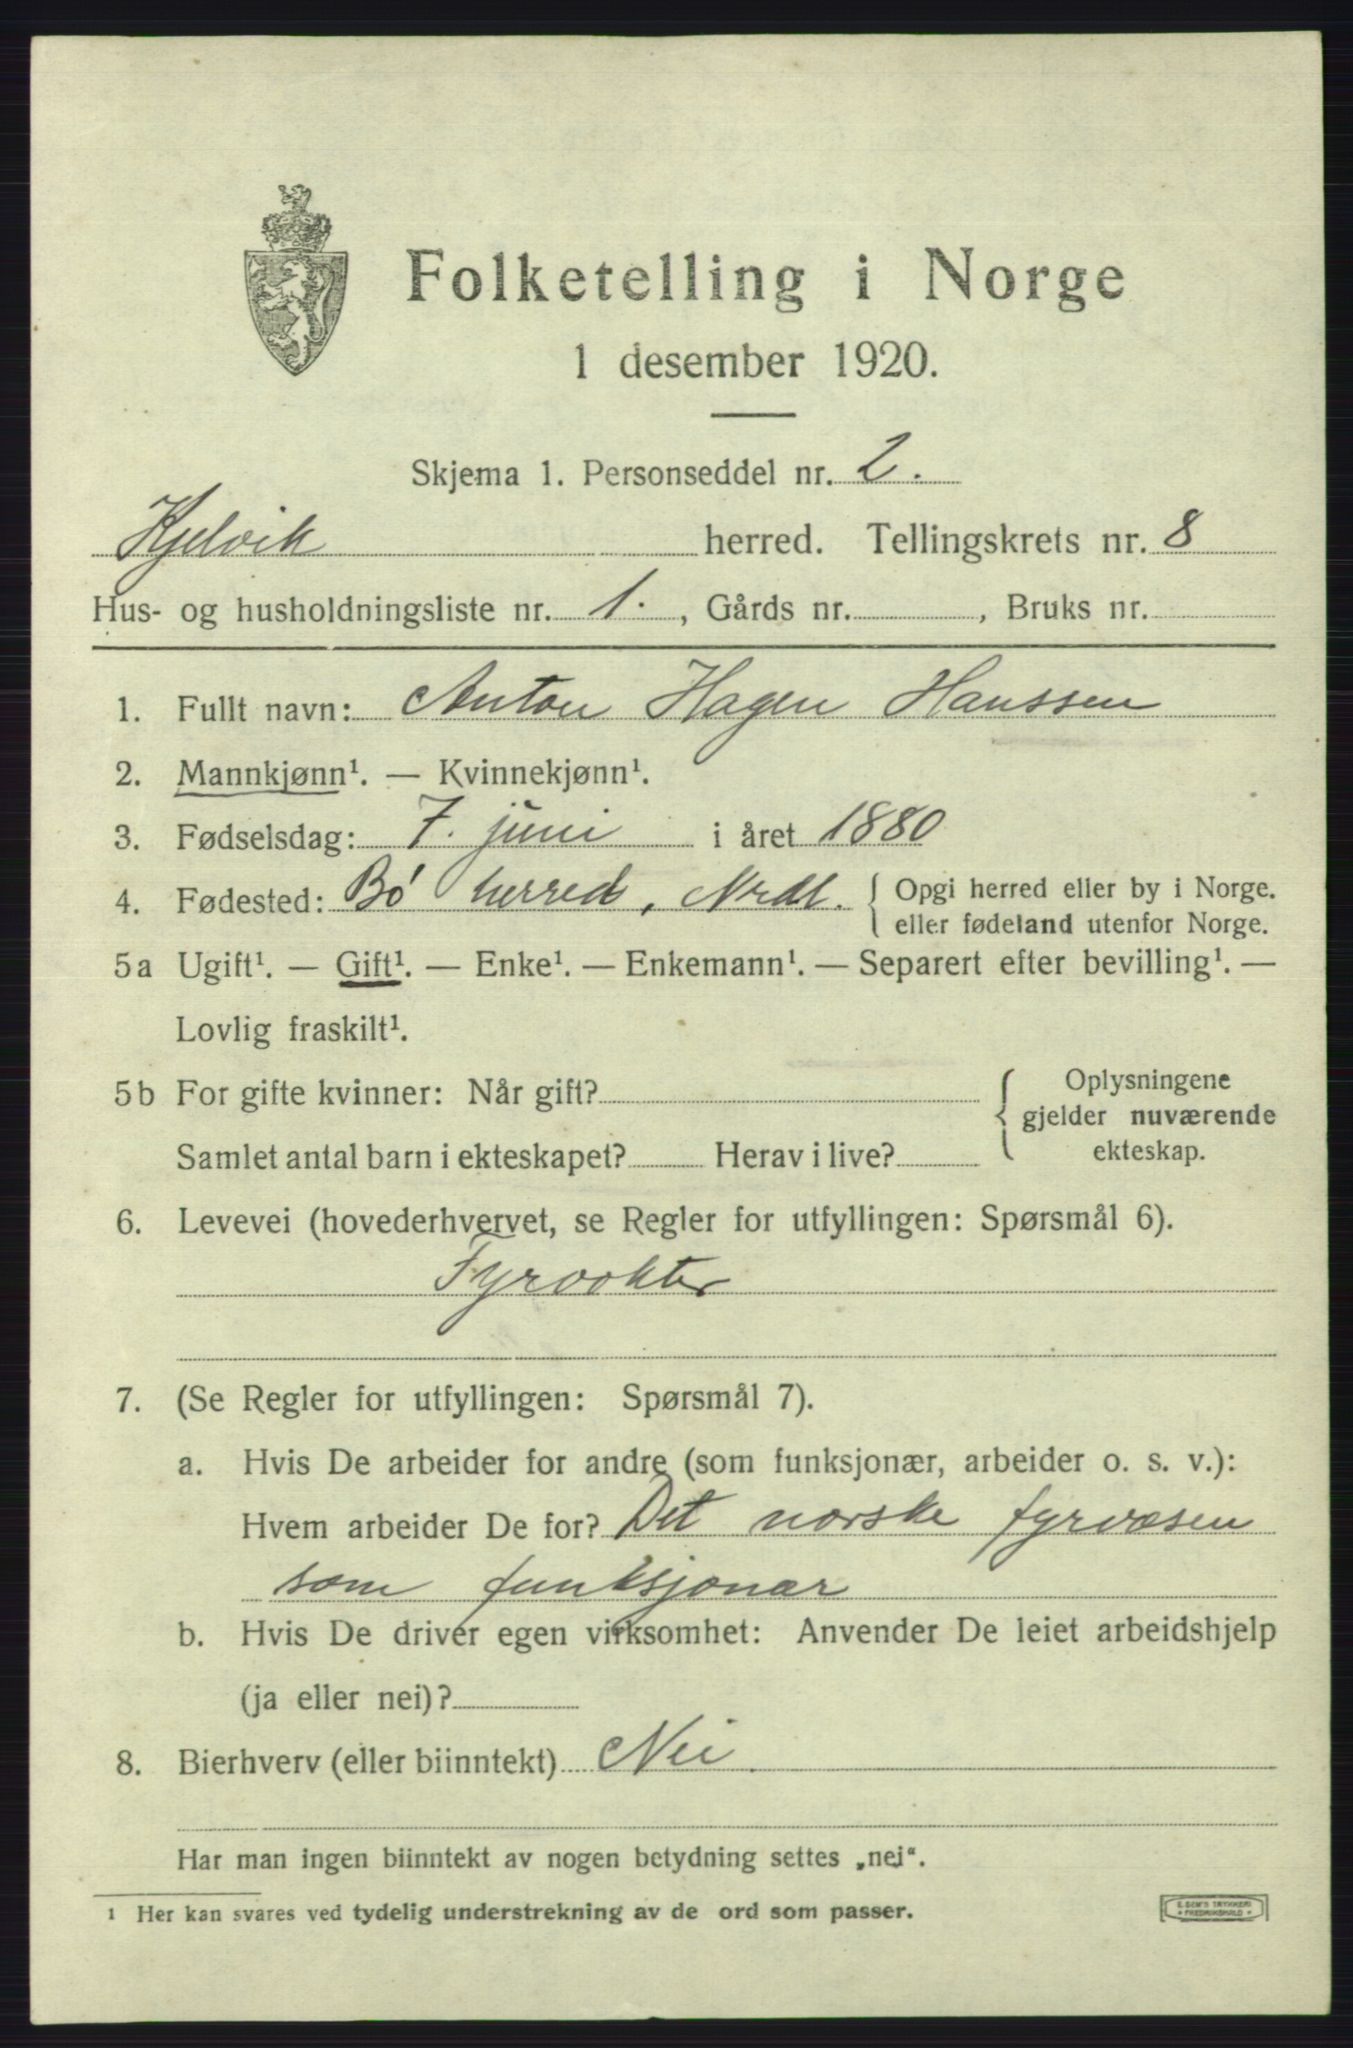 Folketelling i Norge
1 desember 1920.
Skjema 1. Personseddel nr. 2.
Kjelvik herred. Tellingskrets nr. 8
Hus- og husholdningsliste nr. 1. , Gårds nr. , Bruks nr.
1. Fullt navn: Anton Hagen Hanssen
2. Mannkjønn¹. — Kvinnekjønn¹.
3. Fødselsdag: 7. juni i året 1880
4. Fødested: Bø herred, Nrdl. { Opgi herred eller by i Norge.
eller fødeland utenfor Norge.
5a Ugift¹. — Gift¹. — Enke¹. — Enkemann¹. — Separert efter bevilling¹. —
Lovlig fraskilt¹.
5b For gifte kvinner: Når gift? { Oplysningene
gjelder nuværende
Samlet antal barn i ekteskapet? Herav i live? ekteskap.
6. Levevei (hovederhvervet, se Regler for utfyllingen: Spørsmål 6).
Fyrvokter
7. (Se Regler for utfyllingen: Spørsmål 7).
a. Hvis De arbeider for andre (som funksjonær, arbeider o. s. v.):
Hvem arbeider De for? Det norske fyrvæsen
som funksjonær
b. Hvis De driver egen virksomhet: Anvender De leiet arbeidshjelp
(ja eller nei)?
8. Bierhverv (eller biinntekt) Nei.
Har man ingen biinntekt av nogen betydning settes „nei".
1 Her kan svares ved tydelig understrekning av de ord som passer.
E. SEM'S TRYKKERI
* FREDRIKSHALD *